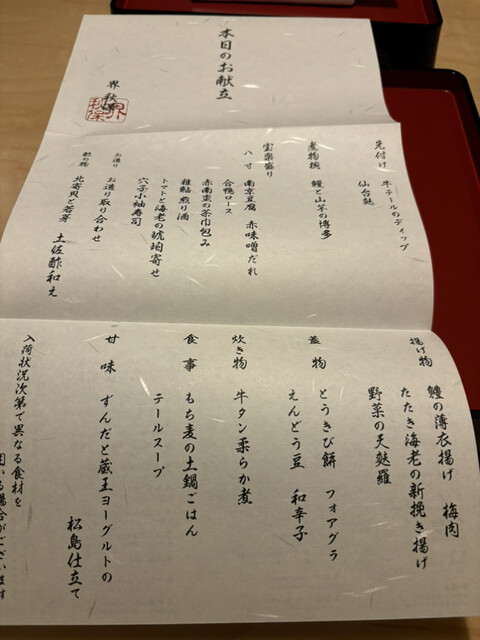 本日のお献立
界 秋保
先付け 牛テールのディップ
仙台麩
煮物椀 鱧と山芋の博多
宝楽盛り
八寸 南京豆腐 赤味噌だれ
合鴨ロース
赤南蛮の茶巾包み
稚鮎煎り酒
トマトと海老の琥珀寄せ
穴子小袖寿司
お造り お造り取り合わせ
酢の物 北寄貝と若芽 土佐酢和え
揚げ物 鱧の薄衣揚げ 梅肉
たたき海老の新挽き揚げ
野菜の天麩羅
蓋物 とうきび餅 フォアグラ
えんどう豆 和辛子
炊き物 牛タン柔らか煮
食事 もち麦の土鍋ごはん
テールスープ
甘味 ずんだと蔵王ヨーグルトの
松島仕立て
入荷状況次第で異なる食材を
用いる場合がございます